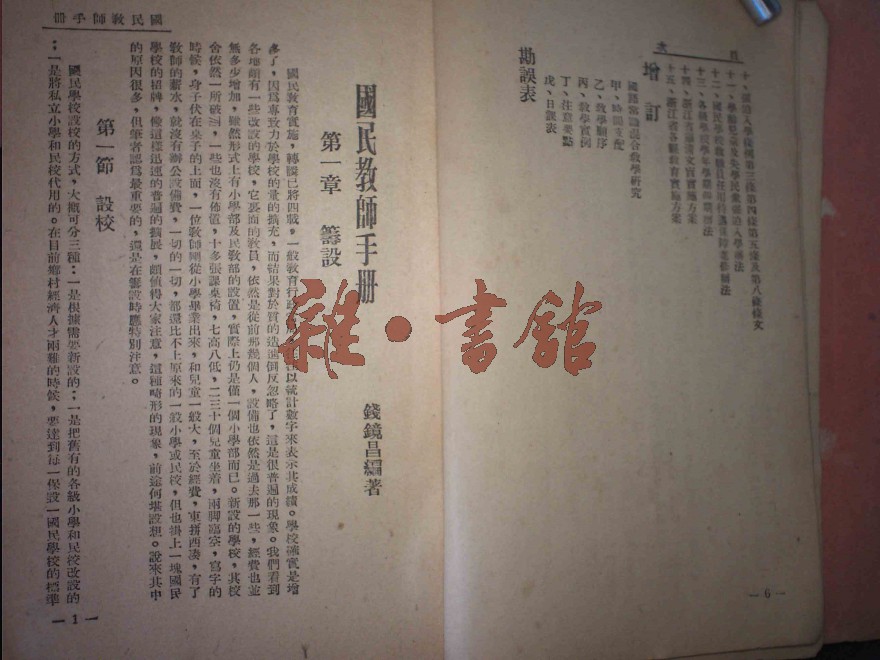 目 次
十、
十一、學齡兒童及失學民眾強迫入學辦法
十二、國民學校
十三、各級學校學年學期
十四、浙江省
十五、浙江省各縣教育實施方案
增訂
國語常識混合教學研究
甲、時間支配
乙、教學順序
丙、教學實例
丁、注意要點
戊、日課表
勘誤表
— 6 —
國民教師手册
國民教師手册
錢鏡昌編著
第一章 籌設
國民教育實施,轉瞬已將四載,一般教育行政 以統計數字來表示其成績。學校確實是增
多了,因爲專致力於學校的量的擴充,而結果對於質的 倒反忽略了,這是很普遍的現象。我們看到
各地頗有一些改設的學校,它裏面的教員,依然是從前那幾個人,設備也依然是過去那一些,經費也並
無多少增加,雖然形式上有小學部及民教部的設置,實際上仍是僅一個小學部而已。新設的學校,其校
舍依然一所破廟,一些也沒有佈置,十多張課桌椅,七高八低,二三十個兒童坐着,兩脚臨空,寫字的
時候,身子伏在桌子的上面,一位教師剛從小學畢業出來,和兒童一般大,至於經費,東拼西湊,有了
教師的薪水,就沒有辦公設備費,一切的一切,都還比不上原來的一般小學或民校,但也掛上一塊國民
學校的招牌,像這樣迅速的普遍的擴展,頗值得大家注意,這種畸形的現象,前途何堪設想。說來其中
的原因很多,但筆者認爲最重要的,還是在籌設時應特別注意。
第一節 設校
國民學校設校的方式,大概可分三種:一是根據需要新設的;一是把舊有的各級小學和民校改設的
;一是將私立小學和民校代用的。在目前鄉村經濟人才兩難的時候,要達到每一保設一國民學校的標準
— 1 —
雜·書館